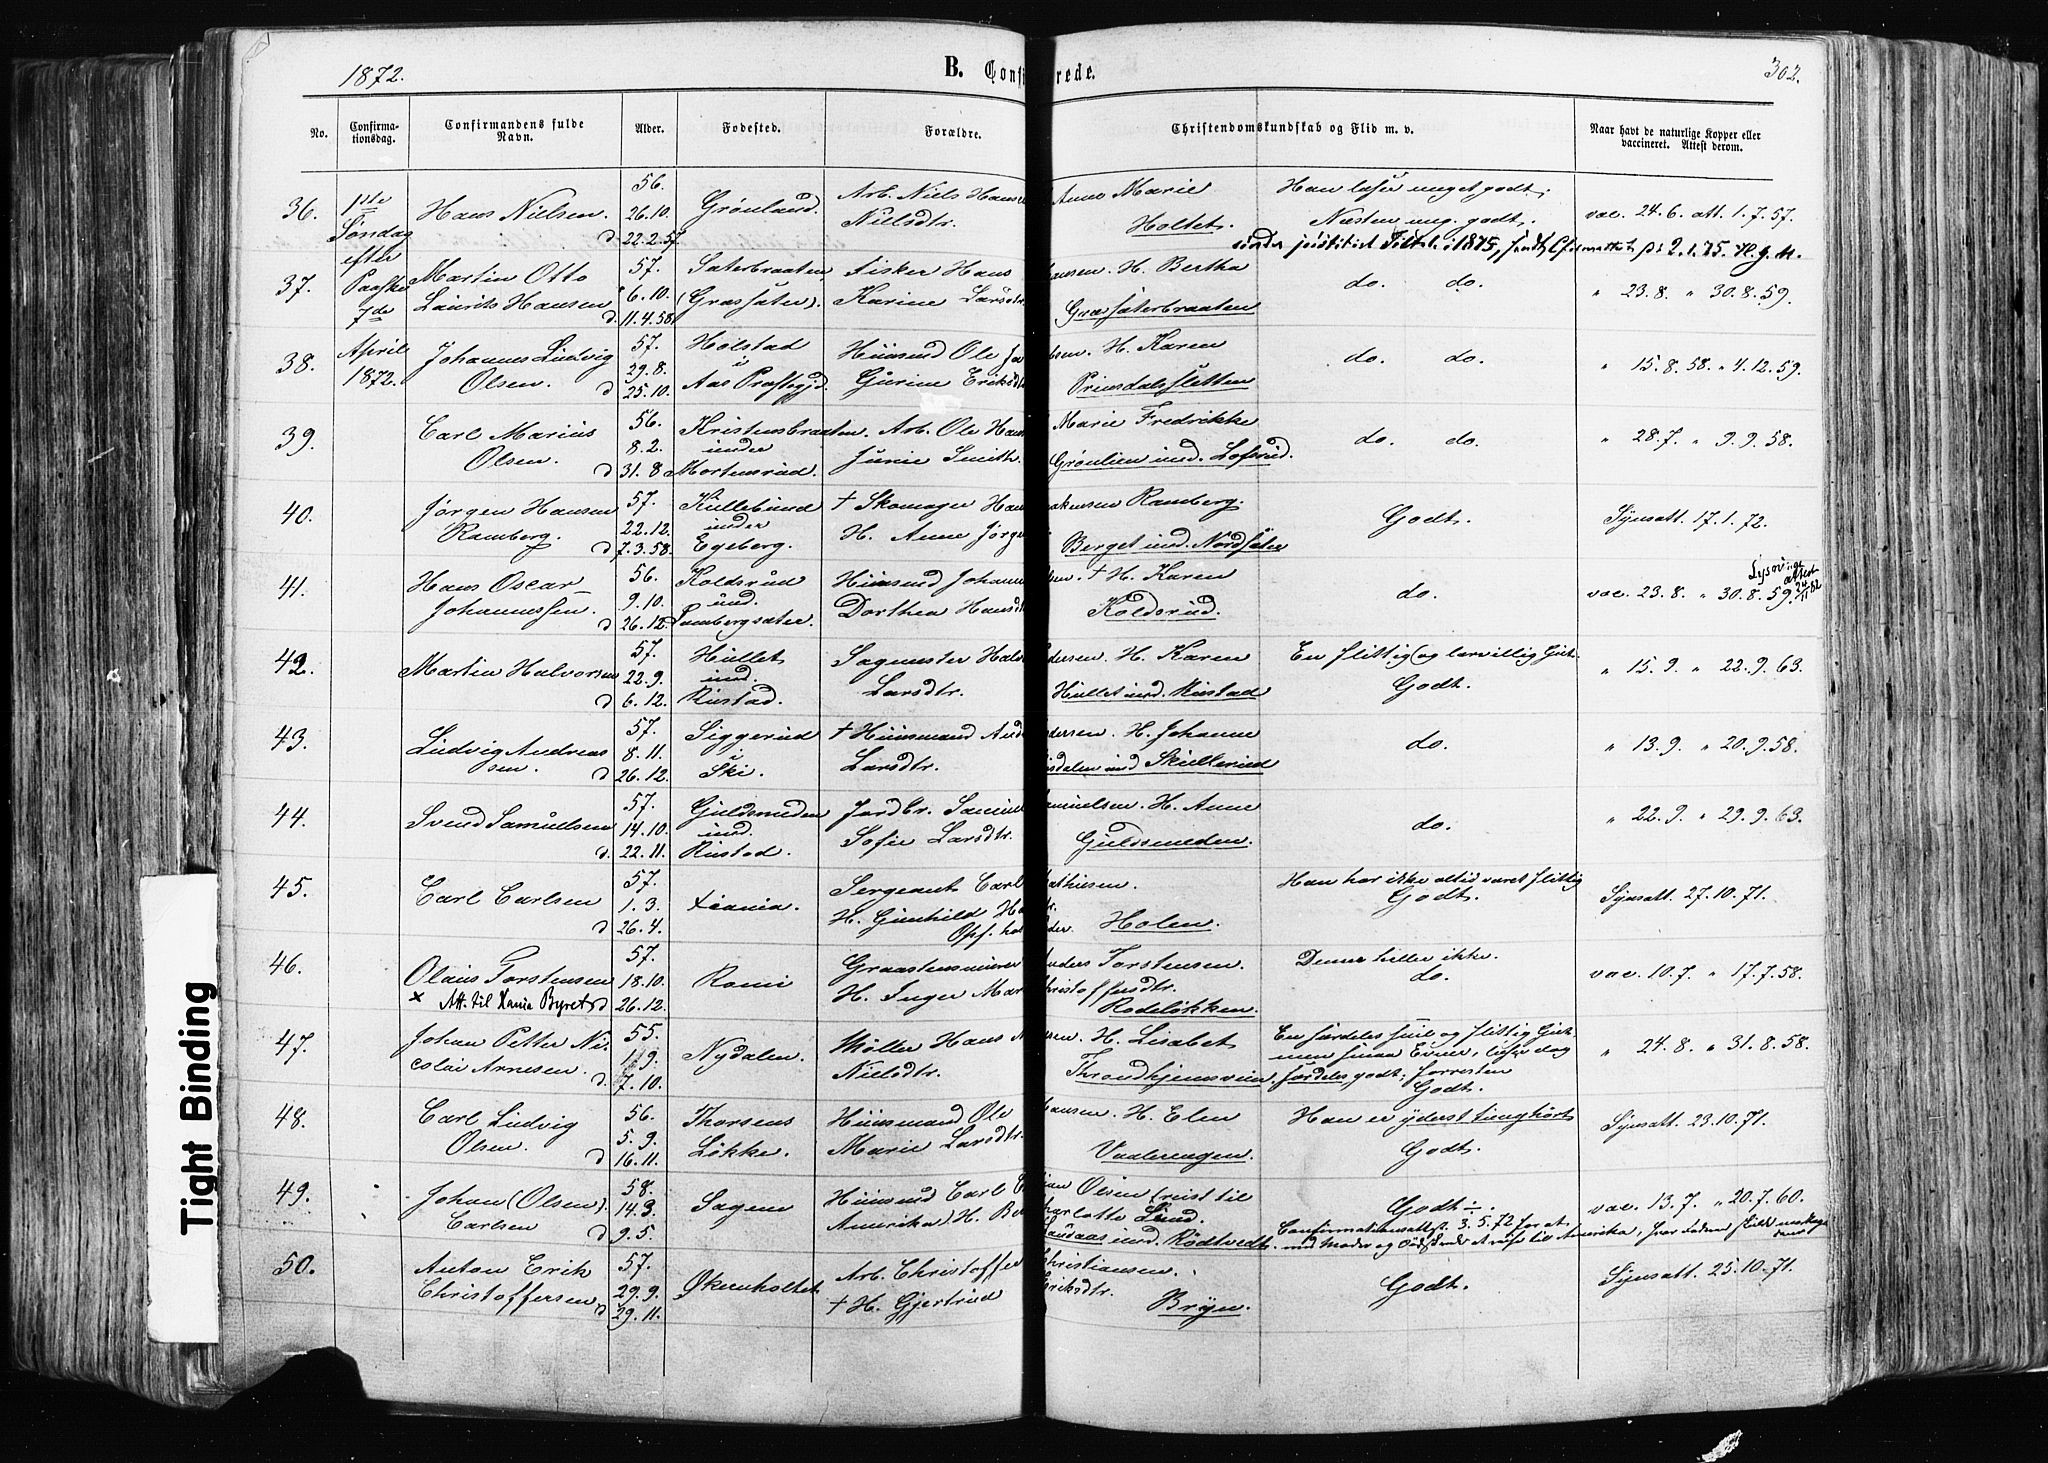 1872.
B. Confi rede.
302.
No.
Confirma-
tionsdag.
Confirmandens fulde
Navn.
Alder.
Fødested.
Forældre.
Christendomskundskab og Flid m. v.
Naar havt de naturlige Kopper eller
vaccineret. Attest derom.
1ste
Søndag
efter
Paaske
7de
April
1872.
36. Hans Nielsen.
56.
26.10.
d 22.2.57.
Grønland.
Arb. Niels Hansen Anne Marie
Nielsdtr. Holtet.
Han læser meget godt.
Næsten meg. godt.
vac. 24.6. att. 1.7.57.
37. Martin Otto
Laurits Hansen
57.
6.10.
d. 11.4.58.
Sæterbraaten
(Græssæter).
Fisker Hans Hansen. H. Bertha
Karine Larsdtr. Græssæterbraaten
do. do.
" 23.8. " 30.8.59.
38. Johannes Ludvig
Olsen.
57.
29.8.
d 25.10.
Holstad
i
Aas Præstegjd
Huusmd Ole H. Karen
Gurine Eriksdtr Prinsdalsletten
do. do.
" 15.8.58. " 4.12.59.
39. Carl Marius
Olsen.
56.
8.2.
d 31.8
Kristensbraaten.
under
Mortensrud.
Arb. Ole Hans Marie Fredrikke
Junie Smith. Grønlien und. Lofsrud.
do. do.
" 28.7. " 9.9.58.
40. Jørgen Hansen
Ramberg.
57.
22.12.
d 7.3.58.
Kullebund
under
Egeberg.
† Skomager Han Ramberg.
H. Anne Jørg Berget und. Nordsæter
Godt.
Synsatt. 17.1.72.
41. Hans Oscar
Johannessen.
56.
9.10.
d 26.12.
Koldsrud
und.
Lambergsæter.
Huusmd Johanne lsen. † H. Karen
Dorthea Hansdt Koldsrud.
do.
vac. 23.8. " 30.8.59.
Lysn
attest
42. Martin Halvorsen
57.
22.9.
d 6.12.
Hullet
und.
Rustad.
Sagmester Halv dersen. H. Karen
Larsdtr. Hullet und. Rustad
En flittig og lærvillig Gut.
Godt.
" 15.9. " 22.9.63.
43. Ludvig Andreas
sen.
57.
8.11.
d 26.12.
Siggerud
i
Ski.
† Huusmand And dersen. H. Johanne
Larsdtr. sdalen und Skullerud
do.
" 13.9. " 20.9.58.
44. Svend Samuelsen
57.
14.10.
d. 22.11.
Guldsmeden
und.
Rustad.
Jordbr. Samuel amuelsen. H. Anne
Sofie Larsdtr. Guldsmeden.
do.
" 22.9. " 29.9.63.
45. Carl Carlsen
57.
1.3.
d 26.4.
Xiania.
Sergeant Carl athiesen.
H. Gunhild Ha tr.
Opf. hos der. Holen.
Han har ikke altid været flittig
Godt.
Synsatt. 27.10.71.
46. Olaus Torstensen
x Att. til Xania Byret
57.
18.10.
d 26.12.
Romi
Graastensmurer nders Torstensen.
H. Inger Mar hristoffersdtr.
Rodeløkken.
Denne heller ikke.
do.
vac. 10.7. " 17.7.58.
47. Johan Petter Ni-
colai Arnesen.
55.
1.9.
d. 7.10.
Nydalen.
Møller Hans A sen. H. Lisabet
Nielsdtr. Throndhjemsveien.
En særdeles snil og flittig Gut
men smaa Evner, læser dog
særdeles godt; forresten
Godt.
" 24.8. " 31.8.58.
48. Carl Ludvig
Olsen.
56.
5.9.
d 16.11.
Thorsens
Løkke.
Huusmand Ole hansen. H. Elen
Marie Larsdtr. Vaalerengen.
Han er yderst tunghørt
Godt.
Synsatt. 23.10.71.
49. Johan (Olsen).
Carlsen
58.
14.3.
d 9.5.
Sagene
Huusmd Carl tian Olsen (reist til
Amerika). H. Ber harlotte Lund.
und. Rødtvedt.
Godt ÷.
Confirmationsattst. 3.5.72 for at
med Moder og Sødskende at reise til Amerika, hvor Faderen
vac. 13.7. " 20.7.60.
50. Anton Erik
Christoffersen
57.
29.9.
d 29.11.
Økernholtet
Arb. Christoffer Christiansen.
† H. Gjertrud Eriksdtr.
Bryn.
Godt.
Synsatt. 25.10.71.
Tight Binding